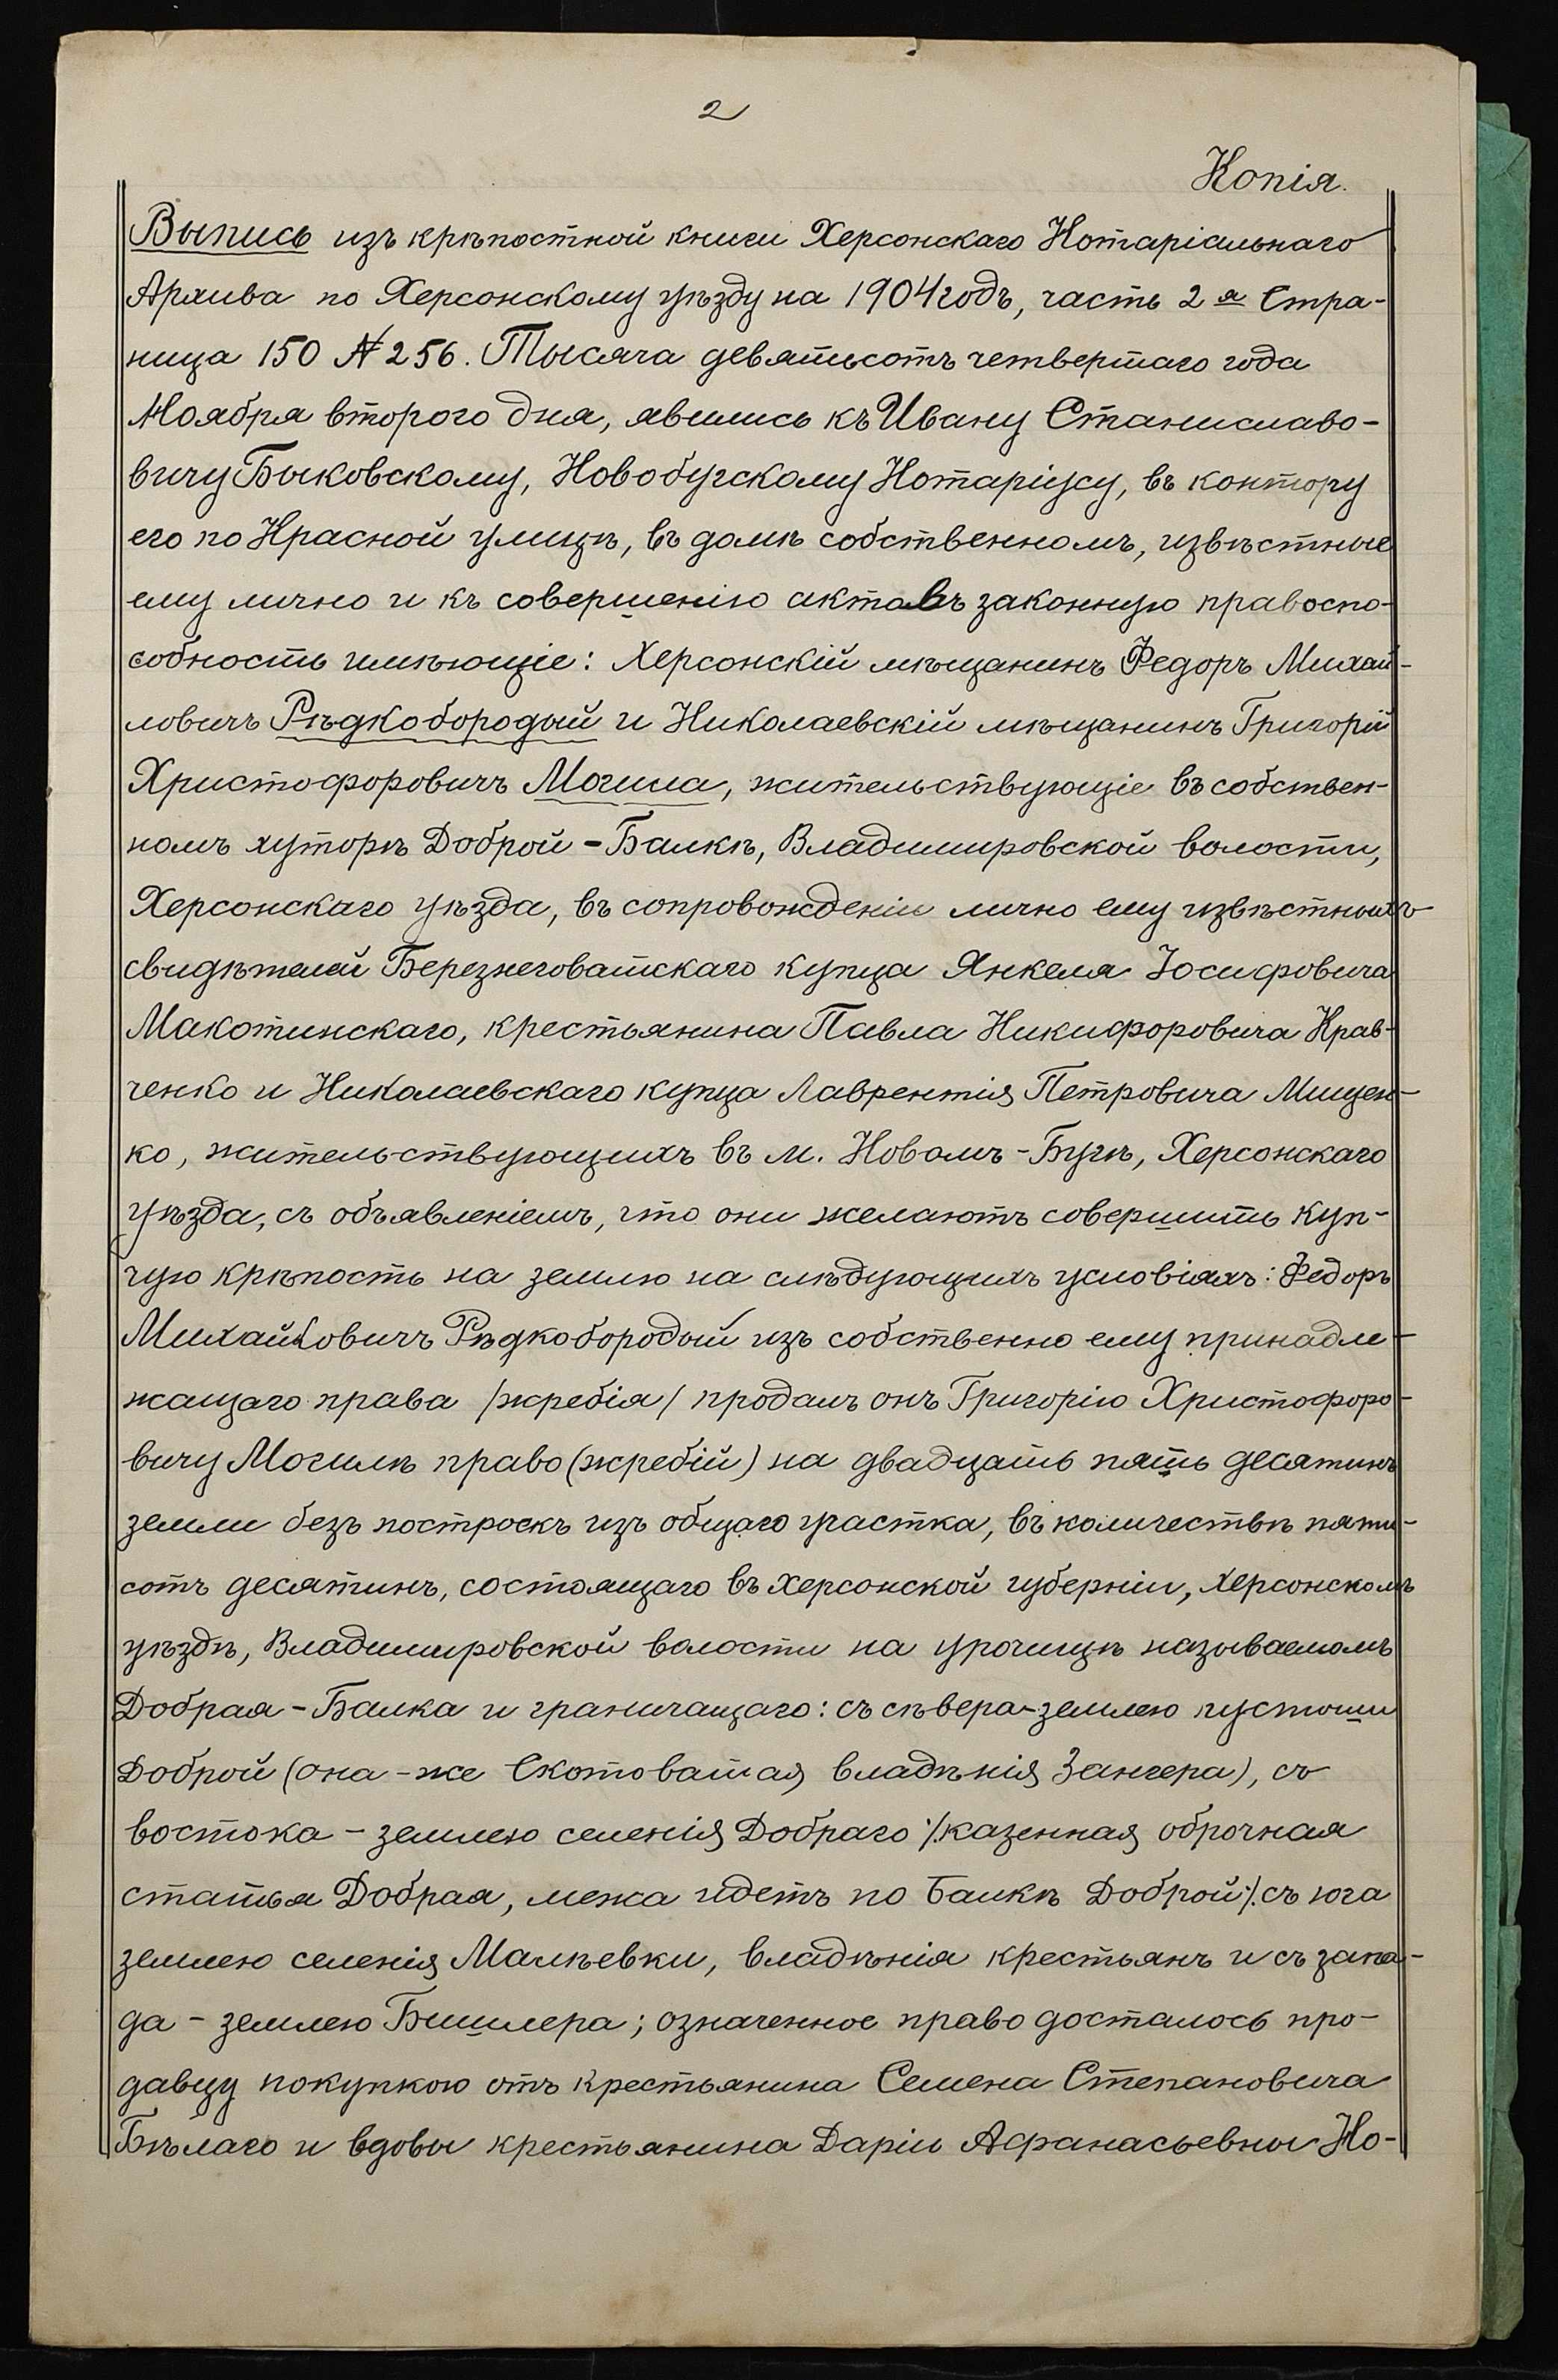 2
Копія.
Выпись изъ крѣпостной книги Херсонскаго Нотаріальнаго
Архива по Херсонскому уѣзду на 1904 годъ, часть 2 я Стра-
ница 150 № 256. Тысяча девятьсотъ четвертаго года
Ноября второго дня, явились къ Ивану Станиславо-
вичу Быковскому, Новобугскому Нотаріусу, въ контору
его по Красной улицѣ, въ домѣ собственномъ, извѣстные
ему лично и къ совершенію актовъ законную правоспо-
собность имѣющіе: Херсонскій мѣщанинъ Федоръ Михай-
ловичъ Рѣдкобородый и Николаевскій мѣщанинъ Григорій
Христофоровичъ Могила, жительствующіе въ собствен-
номъ хуторѣ Доброй-Балкѣ, Владимировской волости,
Херсонскаго уѣзда, въ сопровожденіи лично ему извѣстныхъ
свидѣтелей Березнеговатскаго купца Янкеля Іосифовича
Макотинскаго, крестьянина Павла Никифоровича Крав-
ченко и Николаевскаго купца Лаврентія Петровича Мищен-
ко, жительствующихъ въ м. Новомъ-Бугѣ, Херсонскаго
уѣзда, съ объявленіемъ, что они желаютъ совершить куп-
чую крѣпость на землю на слѣдующихъ условіяхъ: Федоръ
Михайловичъ Рѣдкобородый изъ собственно ему принадле-
жащаго права /жребія/ продалъ онъ Григорію Христофоро-
вичу Могилѣ право (жребій) на двадцать пять десятинъ
земли безъ построекъ изъ общаго участка, въ количествѣ пяти-
сотъ десятинъ, состоящаго въ Херсонской губерніи, Херсонскомъ
уѣздѣ, Владимировской волости на урочищѣ называемомъ
Добрая-Балка и граничащаго: съ сѣвера-землею пустоши
Доброй (она-же Скотоватая владѣнія Зангера), съ
востока - землею селенія Добраго /казенная оброчная
статья Добрая, межа идетъ по Балкѣ Доброй/ съ юга
землею селенія Малѣевки, владѣнія крестьянъ и съ запа-
да - землею Бишлера; означенное право досталось про-
давцу покупкою отъ крестьянина Семена Степановича
Бѣлаго и вдовы крестьянина Даріи Афанасьевны Но-